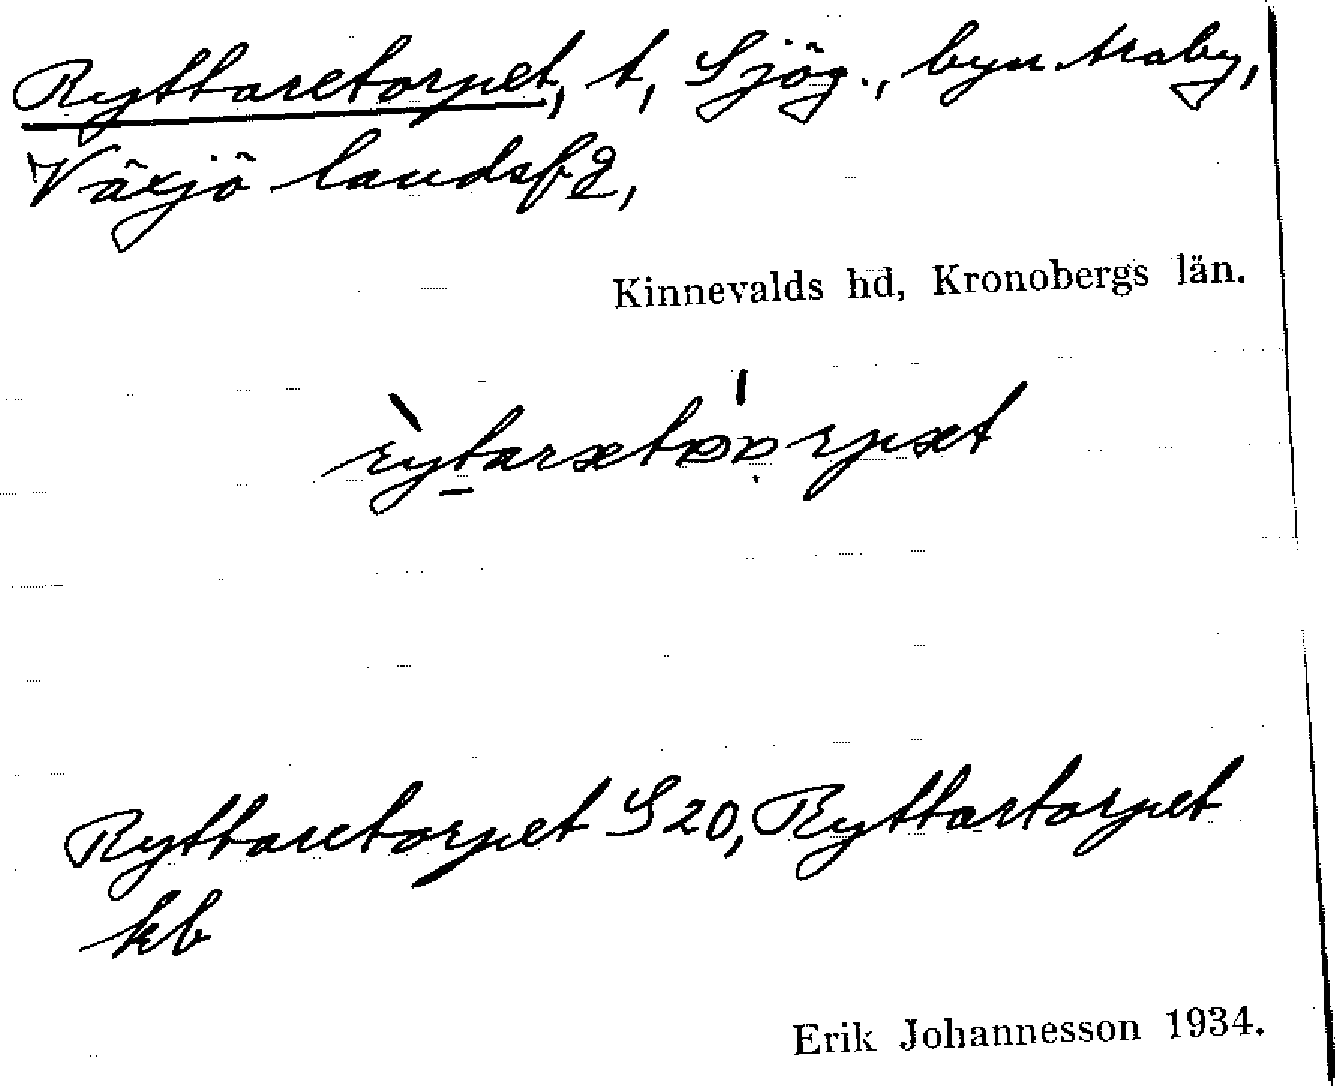 Ryttaretorpet, t, Sjög., byn Araby,
Växjö landsfg,
Kinnevalds hd, Kronobergs län.
Ryttaretorpet S20, Ryttartorpet
kb
Erik Johannesson 1934.